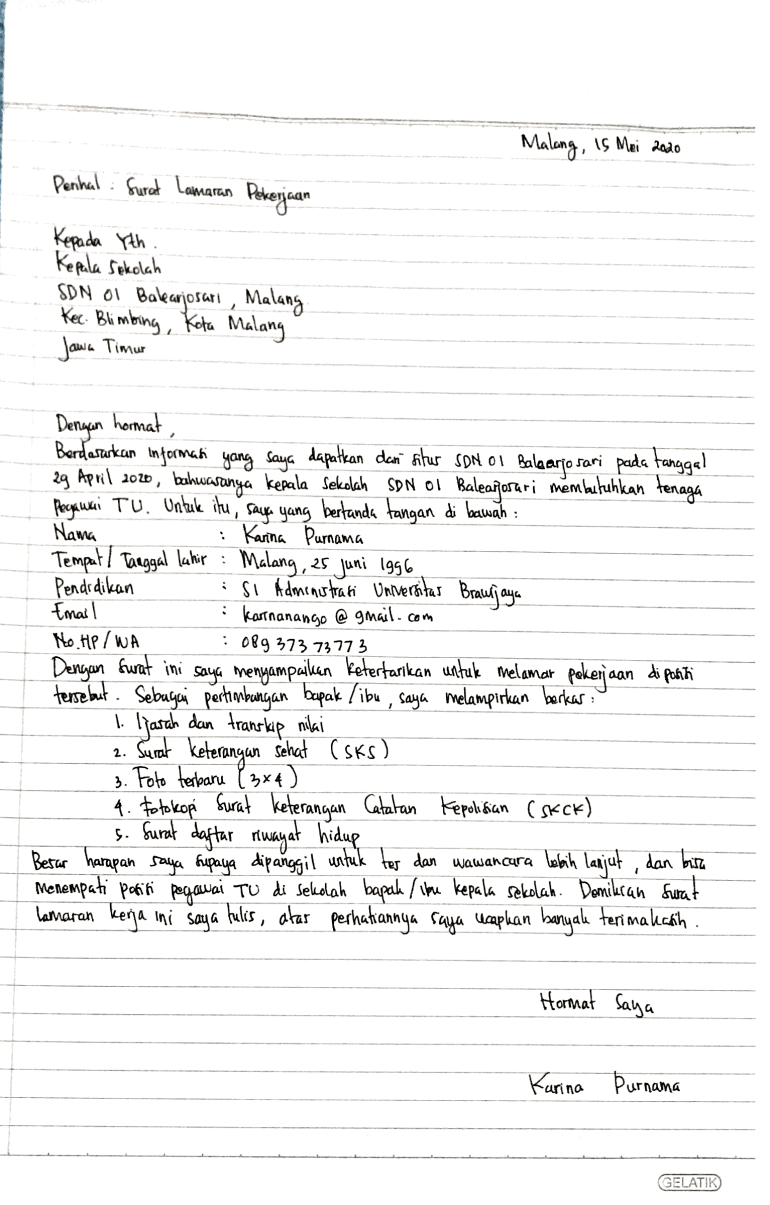 Malang, 15 Mei 2020
Perihal : Surat Lamaran Pekerjaan
Kepada Yth.
Kepala Sekolah
SDN 01 Balearjosari, Malang
Kec. Blimbing, Kota Malang
Jawa Timur
Dengan hormat,
Berdasarkan informasi yang saya dapatkan dari situs SDN 01 Balearjosari pada tanggal
29 April 2020, bahwasanya kepala sekolah SDN 01 Balearjosari membutuhkan tenaga
pegawai TU. Untuk itu, saya yang bertanda tangan di bawah :
Nama : Karina Purnama
Tempat / Tanggal lahir : Malang, 25 Juni 1996
Pendidikan : S1 Administrasi Universitas Brawijaya
Email : karinanango @ gmail.com
No.HP / WA : 089 373 73773
Dengan surat ini saya menyampaikan ketertarikan untuk melamar pekerjaan di posisi
tersebut. Sebagai pertimbangan bapak / ibu, saya melampirkan berkas :
1. Ijasah dan transkip nilai
2. Surat keterangan sehat (SKS)
3. Foto terbaru (3x4)
4. Fotokopi Surat keterangan Catatan Kepolisian (SKCK)
5. Surat daftar riwayat hidup
Besar harapan saya supaya dipanggil untuk tes dan wawancara lebih lanjut, dan bisa
menempati posisi pegawai TU di sekolah bapak / ibu kepala sekolah. Demikian surat
lamaran kerja ini saya tulis, atas perhatiannya saya ucapkan banyak terimakasih.
Hormat Saya
Karina Purnama
GELATIK